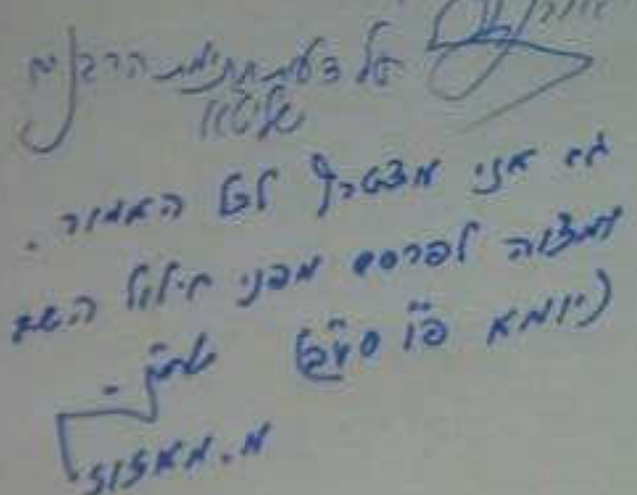 על דעת חתימת הרבנים
שליט"א
גם אני מצטרף לכל האמור.
ומצוה לפרסם מפני חילול השם
(יומא פ"ו סע"ב)
מ. מאזוז